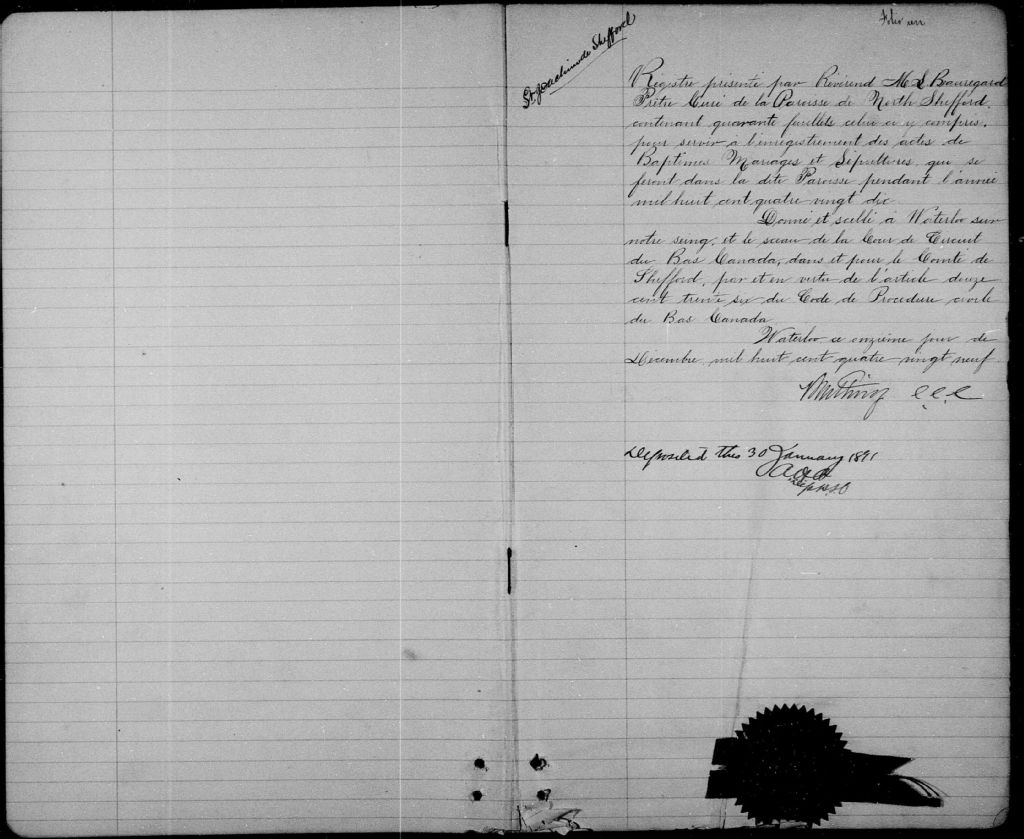 Folio un
St Joachim de Shefford
Registre présenté par Révérend M L Beauregard
Prêtre Curé de la Paroisse de North Shefford,
contenant quarante feuillets celui ci y compris,
pour servir à l'enregistrement des actes de
Baptêmes Mariages et Sépultures que se
feront dans la dite Paroisse pendant l'année
mil huit cent quatre vingt dix
Donné et scellé à Waterloo sur
notre seing, et le sceau de la Cour de Circuit
du Bas Canada, dans et pour le Comté de
Shefford, par et en vertu de l'article douze
cent trente six du Code de Procedure civile
du Bas Canada
Waterloo ce onzième jour de
Décembre mil huit cent quatre vingt neuf
C C C
Deposited this 30 January 1891